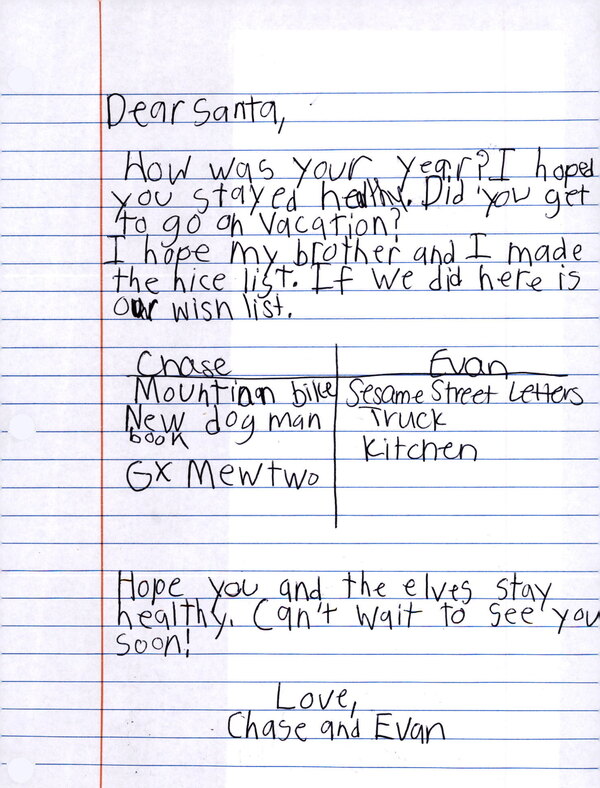 Dear Santa,
How was your year? I hoped
you stayed healthy. Did you get
to go on vacation?
I hope my brother and I made
the nice list. If we did here is
our wish list.
Chase Evan
Mountian bike Sesame Street Letters
New dog man Truck
book Kitchen
Gx Mewtwo
Hope you and the elves stay
healthy. Can't wait to see you
soon!
Love,
Chase and Evan